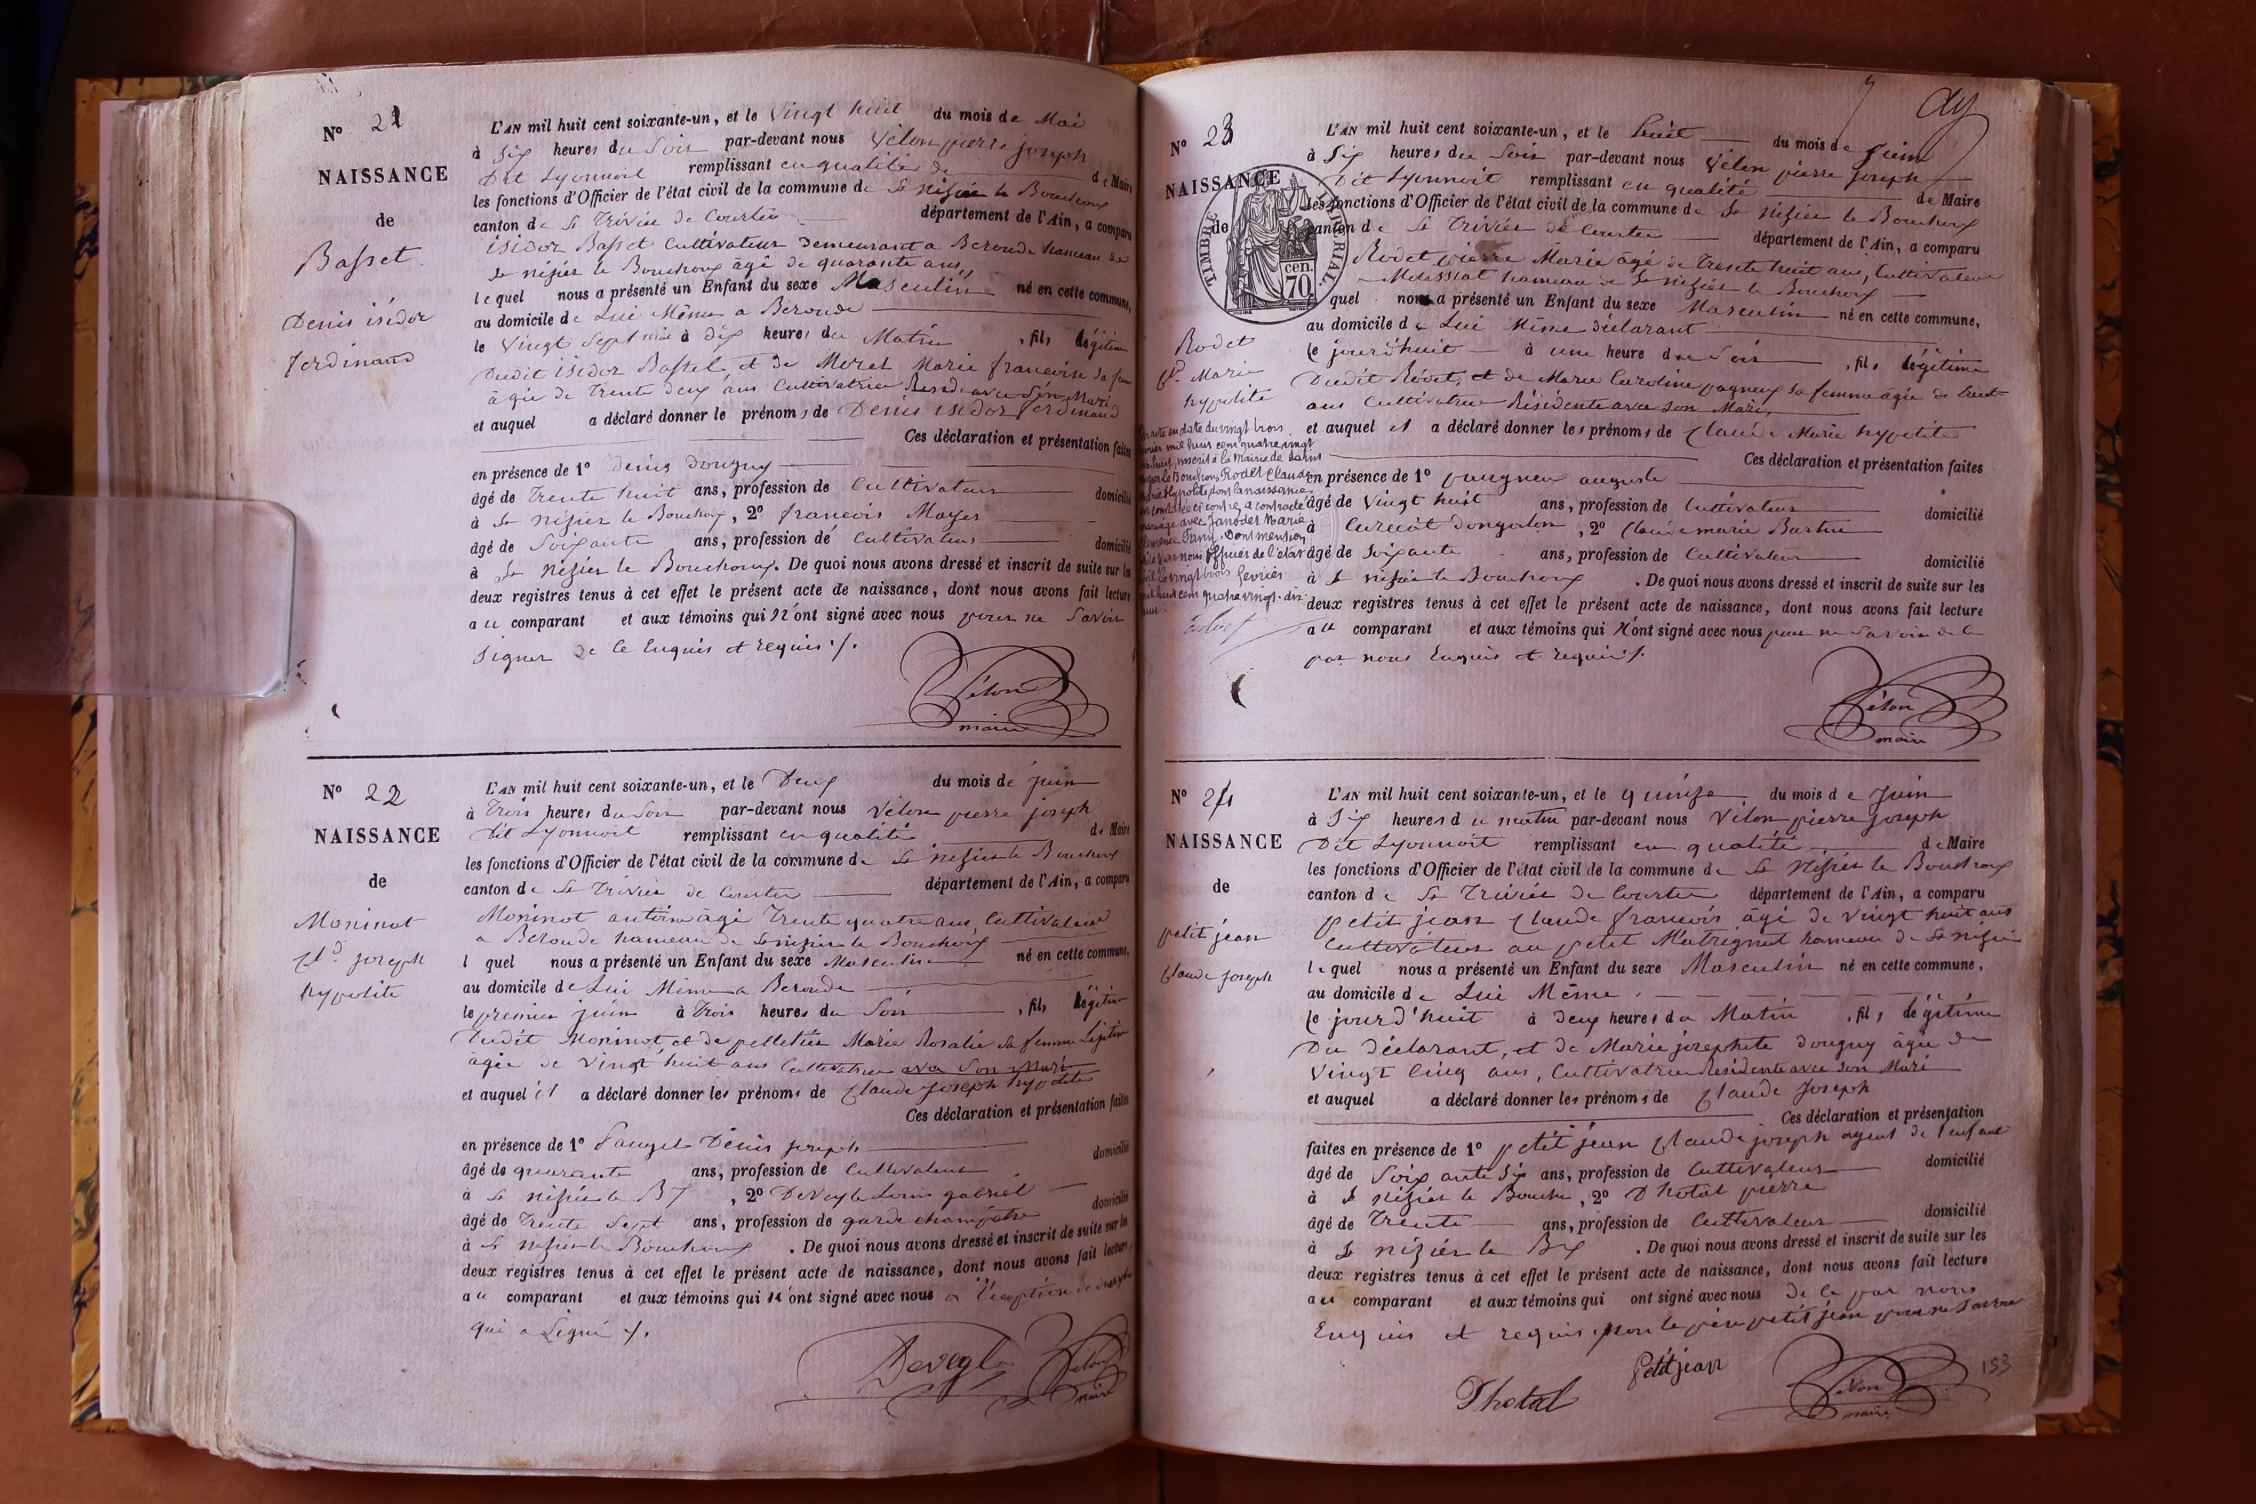 N° 21
NAISSANCE
de
Basset
Denis isidor
ferdinand
L'AN mil huit cent soixante-un, et le Vingt huit du mois de Mai
à Six heures du Soir par-devant nous Vélon pierre joseph
Dit Lyonnoit remplissant en qualité de Maire
les fonctions d'Officier de l'état civil de la commune de St nizier le Bouchoux
canton de St Trivier de Courtes département de l'Ain, a comparu
isidor Basset Cultivateur demeurant a Beroude hameau de
St nizier le Bouchoux âgé de quarante ans
lequel nous a présenté un Enfant du sexe Masculin né en cette commune,
au domicile de Lui Même a Beroude
le Vingt Sept mai à Dix heures du Matin, fils légitime
Dudit isidor Basset et de Morel Marie francoise sa fme
âgée de Trente deux ans Cultivatrice Resid. avec Son Mari
et auquel a déclaré donner le prénoms de Denis isidor ferdinand
Ces déclaration et présentation faites
en présence de 1° Denis Dougny
âgé de Trente huit ans, profession de Cultivateur domicilié
à St nizier le Bouchoux, 2° francois Moyer
âgé de Soixante ans, profession de Cultivateur domicilié
à St nizier le Bouchoux. De quoi nous avons dressé et inscrit de suite sur les
deux registres tenus à cet effet le présent acte de naissance, dont nous avons fait lecture
au comparant et aux témoins qui N'ont signé avec nous pour ne Savoir
Signer de ce Enquis et requis ./.
Vélon
maire
N° 22
NAISSANCE
de
Moninot
Cld. joseph
hypolite
L'AN mil huit cent soixante-un, et le Deux du mois de juin
à Trois heures du Soir par-devant nous Vélon pierre joseph
Dit Lyonnoit remplissant en qualité de Maire
les fonctions d'Officier de l'état civil de la commune de St nizier le Bouchoux
canton de St Trivier de Courtes département de l'Ain, a comparu
Moninot antoine âgé Trente quatre ans, Cultivateur
a Beroude hameau de St nizier le Bouchoux
l quel nous a présenté un Enfant du sexe Masculin né en cette commune,
au domicile de Lui Même a Beroude
le premier juin à Trois heures du Soir, fils légitime
Dudit Moninot et de pelletier Marie Rosalie sa femme Légitime
âgée de Vingt huit ans Cultivatrice avec Son Mari
et auquel il a déclaré donner les prénoms de Claude joseph hypolite
Ces déclaration et présentation faites
en présence de 1° Denis joseph
âgé de quarante ans, profession de Cultivateur domicilié
à St nizier le Bx, 2° Louis gabriel
âgé de Trente Sept ans, profession de garde champetre domicilié
à St nizier le Bouchoux. De quoi nous avons dressé et inscrit de suite sur les
deux registres tenus à cet effet le présent acte de naissance, dont nous avons fait lecture
au comparant et aux témoins qui N'ont signé avec nous a l'exception de
qui a Signé ./.
Vélon
maire
N° 23
NAISSANCE
de
Rodet
Cld. Marie
hypolite
TIMBRE IMPÉRIAL.
70 cen.
L'AN mil huit cent soixante-un, et le huit du mois de juin
à Six heures du Soir par-devant nous Vélon pierre joseph
Dit Lyonnoit remplissant en qualité de Maire
les fonctions d'Officier de l'état civil de la commune de St nizier le Bouchoux
canton de St Trivier de Courtes département de l'Ain, a comparu
Rodet pierre Marie âgé de Trente huit ans, Cultivateur
Molissiat hameau de St nizier le Bouchoux
quel nous a présenté un Enfant du sexe Masculin né en cette commune,
au domicile de Lui Même déclarant
le jourd'huit à une heure du Soir, fils légitime
Dudit Rodet, et de Marie Caroline pagneux sa femme âgée de trente
ans Cultivatrice Résidente avec son Mari
et auquel il a déclaré donner les prénoms de Claude Marie hypolite
Ces déclaration et présentation faites
en présence de 1° auguste
âgé de Vingt huit ans, profession de Cultivateur domicilié
à, 2° Claude marie
âgé de Soixante ans, profession de Cultivateur domicilié
à St nizier le Bouchoux. De quoi nous avons dressé et inscrit de suite sur les
deux registres tenus à cet effet le présent acte de naissance, dont nous avons fait lecture
au comparant et aux témoins qui N'ont signé avec nous pour ne Savoir de ce
par nous Enquis et requis ./.
Vélon
maire
acte en date du vingt trois
février mil huit cent quatre vingt
inscrit à la Mairie de Saint
nizier le Bouchoux, Rodet Claude
Marie Hypolite dont la naissance
est constatée ci contre, a contracté
mariage avec Janodet Marie
Fany. Dont mention
par nous Officier de l'état
civil le vingt trois février
mil huit cent quatre vingt dix
N° 24
NAISSANCE
de
petit jean
Claude joseph
L'AN mil huit cent soixante-un, et le quinze du mois de juin
à Six heures du matin par-devant nous Vélon pierre joseph
Dit Lyonnoit remplissant en qualité de Maire
les fonctions d'Officier de l'état civil de la commune de St Nizier le Bouchoux
canton de St Trivier de Courtes département de l'Ain, a comparu
petit jean Claude francois âgé de Vingt huit ans
Cultivateur au petit Matrignat hameau de St nizier
lequel nous a présenté un Enfant du sexe Masculin né en cette commune,
au domicile de Lui Même
le jourd'huit à Deux heures du Matin, fils légitime
Du déclarant, et de Marie josephete dougny âgée de
Vingt Cinq ans, Cultivatrice Résidente avec Son Mari
et auquel a déclaré donner les prénoms de Claude joseph
Ces déclaration et présentation
faites en présence de 1° petit jean Claude joseph ayeul de l'enfant
âgé de Soixante Six ans, profession de Cultivateur domicilié
à St Nizier le Bouchx, 2° Thotal pierre
âgé de Trente ans, profession de Cultivateur domicilié
à St nizier le Bx. De quoi nous avons dressé et inscrit de suite sur les
deux registres tenus à cet effet le présent acte de naissance, dont nous avons fait lecture
au comparant et aux témoins qui ont signé avec nous de ce par nous
Enquis et requis non le père petit jean pour ne Savoir
petitjean
Thotal
Vélon
maire
153